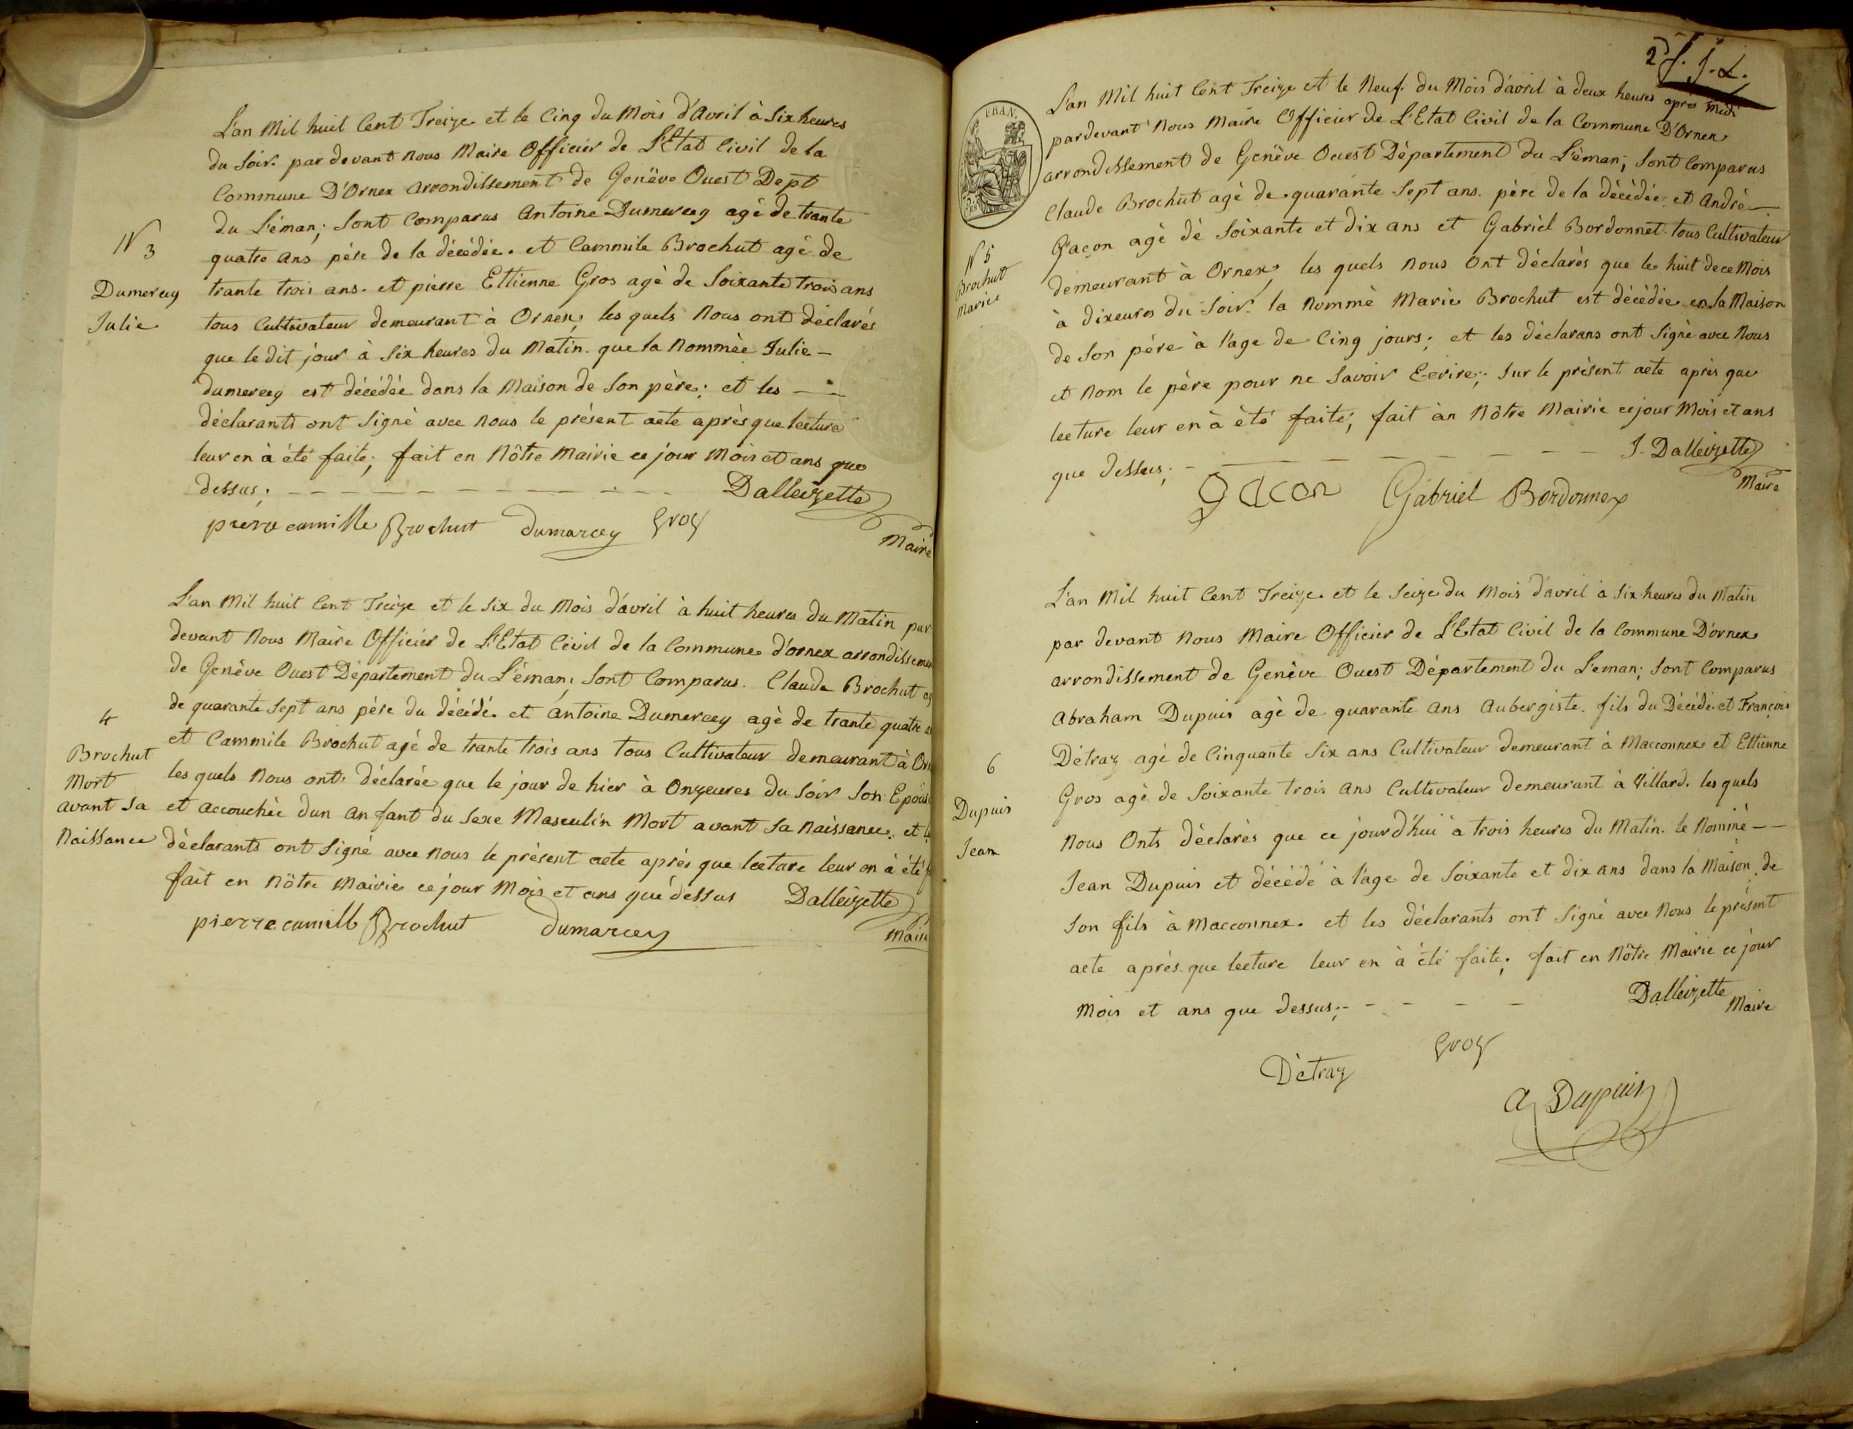 L'an Mil huit Cent Treize et le Cinq du Mois d'Avril à Six heures
du Soir par devant nous Maire Officier de L'Etat Civil de la
Commune D'Ornex arrondissement de Genève Ouest Dept
du Léman; Sont Comparus Antoine Dumercey agé de trante
quatre ans père de la décédée. et Cammile Brochut agé de
trante trois ans. et pierre Ettienne Gros agé de Soixante trois ans
tous Cultivateur demeurant à Ornex, les quels Nous ont déclarés
que le dit jour à Six heures du Matin. que la Nommée Julie —
dumercey est décédée dans la Maison de Son père; et les — —
déclarants ont Signé avec nous le présent acte après que lecture
leur en à été faite; fait en Nôtre Mairie ce jour Mois et ans que
dessus; — — — — — — — — — — Dalleizette
Maire
pierre camille Brochut Dumarcey Gros
N 3
Dumercey
Julie
L'an Mil huit Cent Treize et le Six du Mois d'avril à huit heures du Matin par
devant Nous Maire Officier de L'Etat Civil de la Commune d'ornex arrondissemen
de Genève Ouest Département du Léman; Sont Comparus. Claude Brochut ag
de quarante Sept ans père du décédé. et Antoine Dumercey agé de trante quatre a
et Cammile Brochut agé de trante trois ans tous Cultivateur demeurant à Orn
les quels Nous ont déclarée que le jour de hier à Onzeures du Soir Son Epouse
et accouchée dun anfant du Sexe Masculin Mort avant Sa Naissance. et le
déclarants ont Signé avec Nous le présent acte après que lecture leur en à été f
fait en Nôtre Mairie ce jour Mois et ans que dessus Dalleizette
Maire
pierre camille Brochut Dumarcey
4
Brochut
Mort
avant Sa
Naissance
2 J. J. L.
L'an Mil huit Cent Treize et le Neuf du Mois d'avril à deux heures après Midi
pardevant Nous Maire Officier de L'Etat Civil de la Commune D'Ornex
arrondissement de Genève Ouest Département du Léman; Sont Comparus
Claude Brochut agé de quarante Sept ans. père de la décédée. et André —
Gaçon agé de Soixante et dix ans et Gabriel Bordonnet tous Cultivateur
demeurant à Ornex, les quels Nous Ont déclarés que le huit de ce Mois
à dixeures du Soir. la Nommé Marie Brochut est décédée en la Maison
de Son père à l'age de Cinq jours; et les déclarans ont Signé avec Nous
et Nom le père pour ne Savoir Ecrire; Sur le présent acte après que
lecture leur en à été faite; fait àn Nôtre Mairie ce jour Mois et ans
que dessus; — — — — — — — J. Dalleizette
Maire
gacon Gabriel Bordonnex
N 5
Brochut
Marie
L'an Mil huit Cent Treize et le Seize du Mois d'avril à Six heures du Matin
par devant Nous Maire Officier de L'Etat Civil de la Commune D'ornex
arrondissement de Genève Ouest Département du Léman; Sont Comparus
Abraham Dupuis agé de quarante ans Aubergiste. fils du Décédé. et François
Détraz agé de Cinquante Six ans Cultivateur demeurant à Macconnex et Ettienne
Gros agé de Soixante trois ans Cultivateur demeurant à Villard. les quels
Nous Onts déclarés que ce jourd'hui à trois heures du Matin. le Nommé — —
Jean Dupuis et décédé à l'age de Soixante et dix ans dans la Maison de
Son fils à Macconnex. et les déclarants ont Signé avec Nous le présent
acte après que lecture leur en à été faite; fait en Nôtre Mairie ce jour
Mois et ans que dessus; — — — — Dalleizette Maire
Détraz Gros
A Dupuis
6
Dupuis
Jean